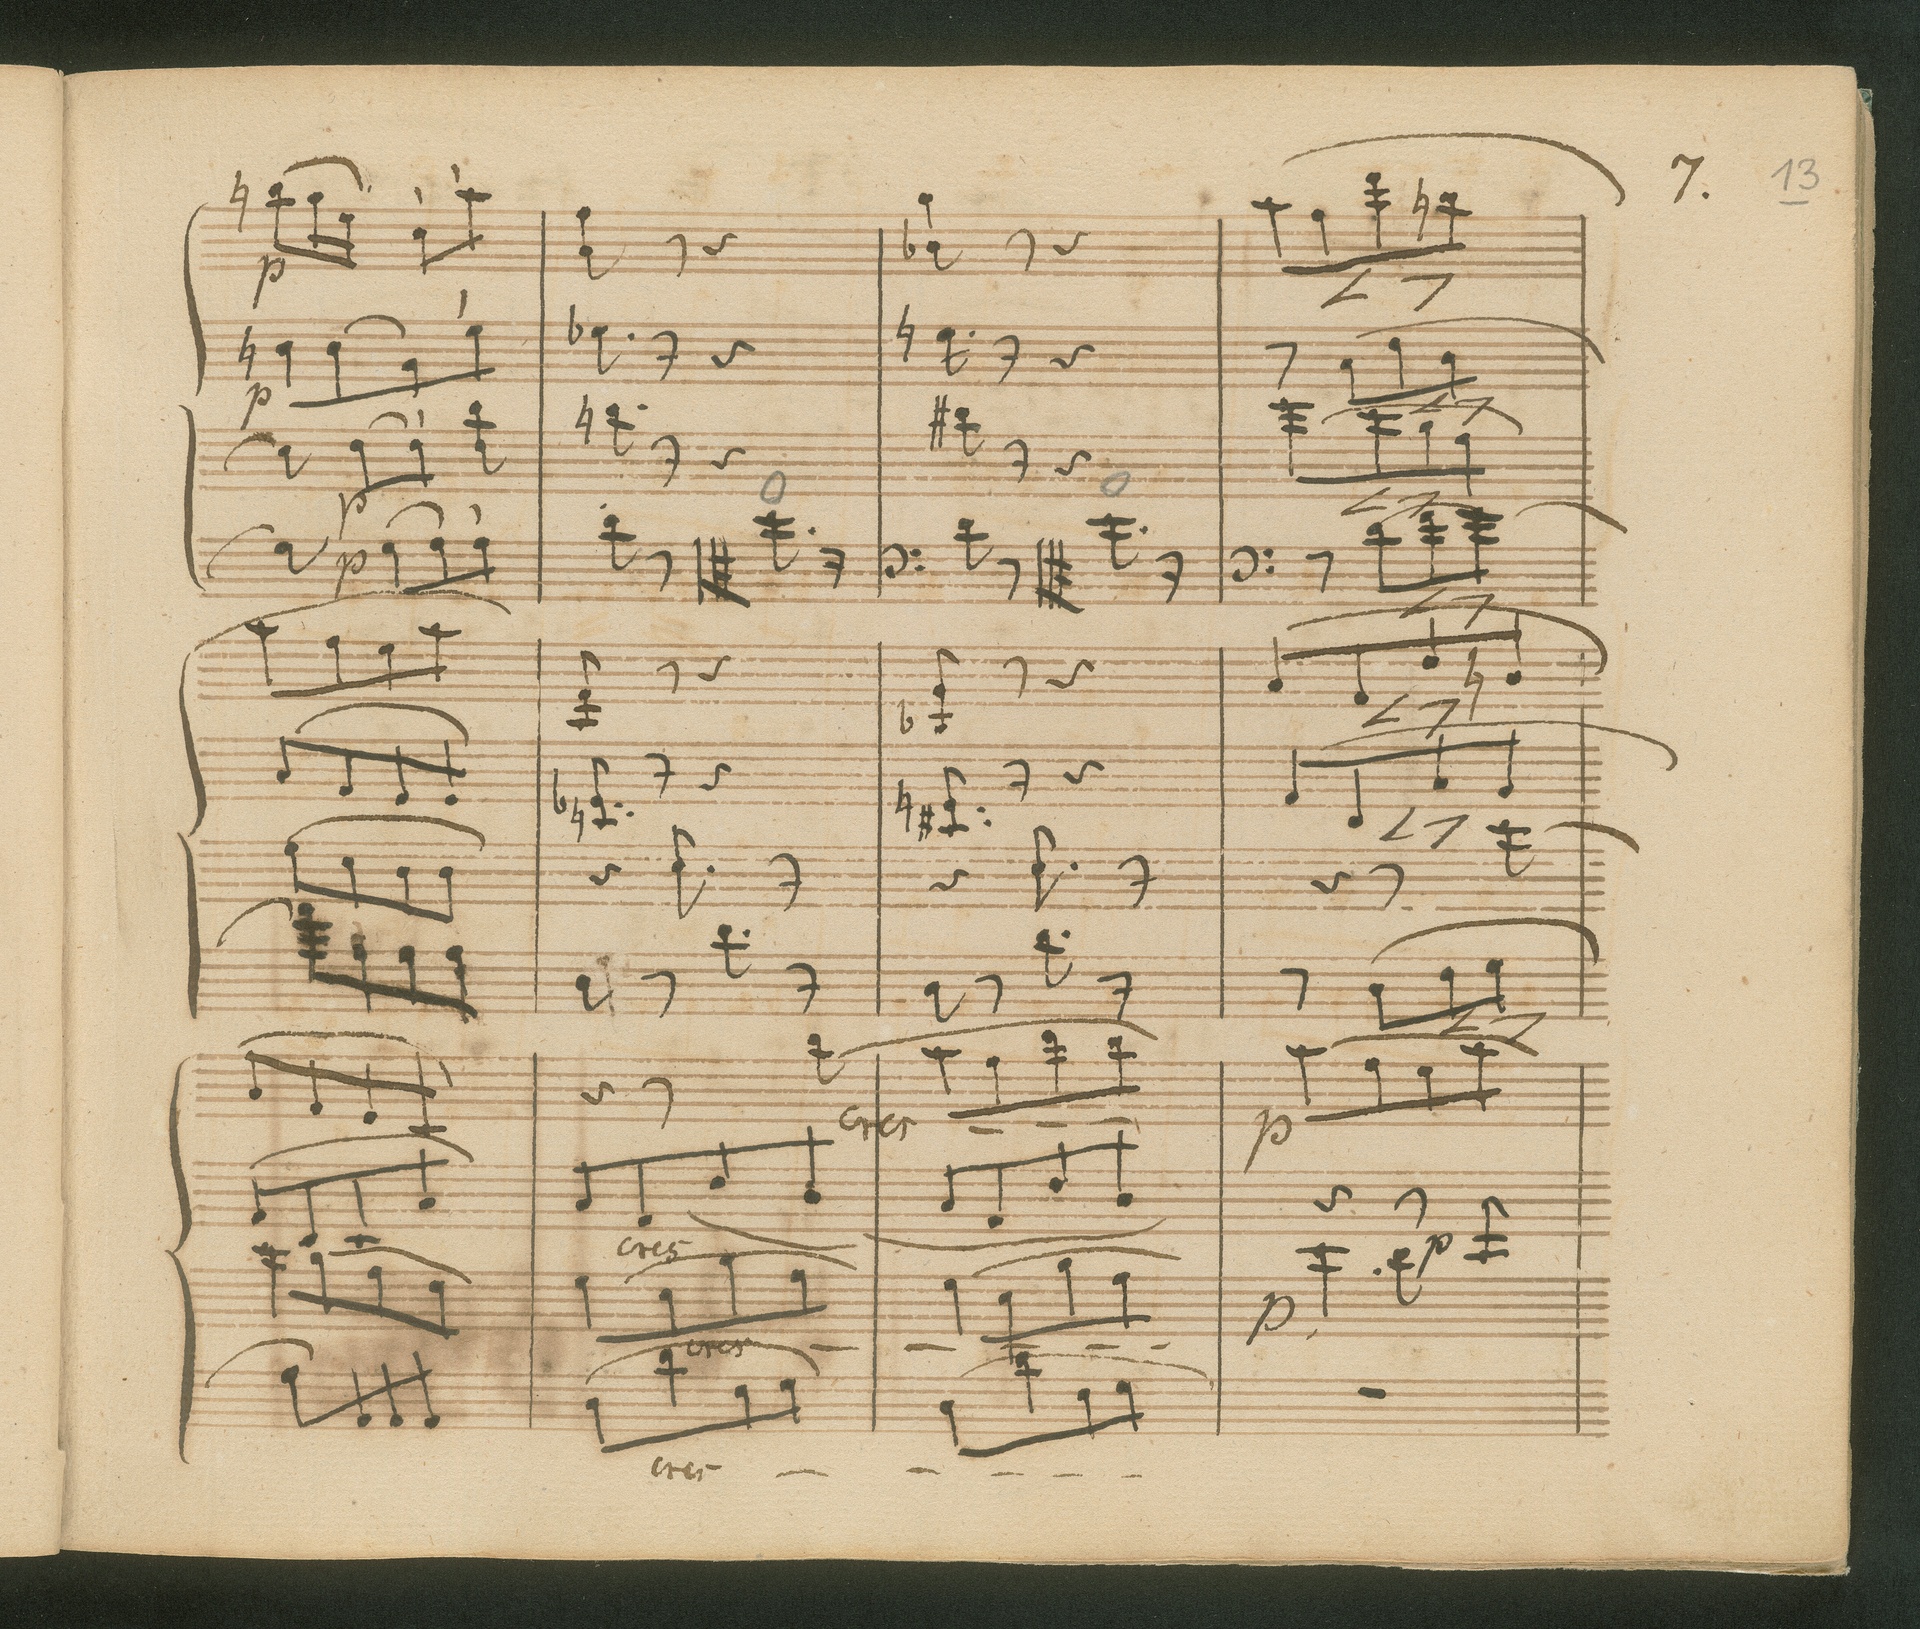 7. 13
p
p
p
p
cres
cres
p
p
cres
p
cres